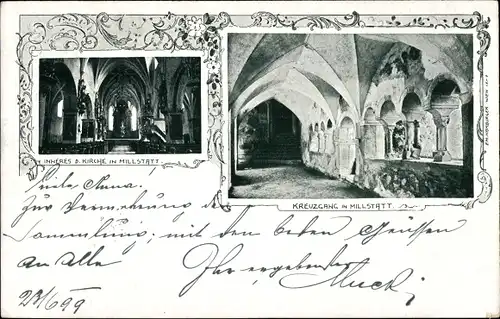 INNERES D. KIRCHE IN MILLSTATT.
KREUZGANG IN MILLSTATT.
Anna.
Zur Vermehrung der
Sammlung, mit den besten Grüssen
an Alle
Ihr ergebender
Muck
23/6 99